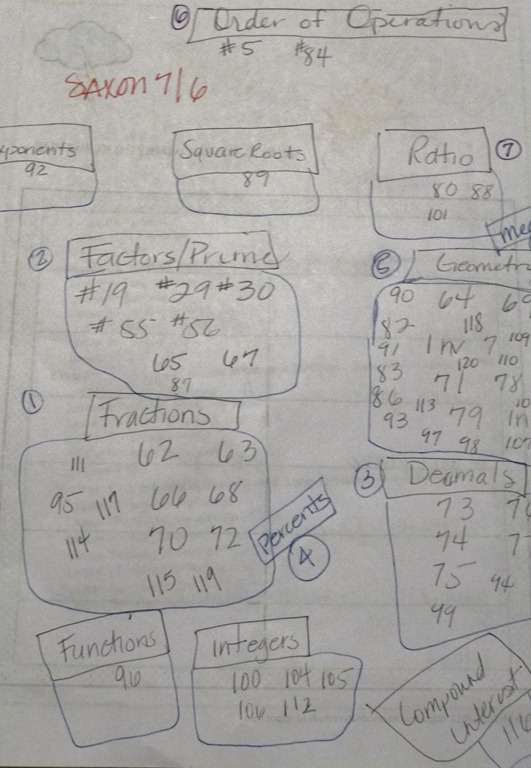 6 Order of Operations
#5 #84
SAXON 7/6
ponents
92
Square Roots
89
Ratio 7
80 88
101
2 Factors/Prime
#19 #29 #30
#55 #56
65 67
87
Geometr
90 64
82 118
91 Inv 7 109
83 120 110
71 78
86 113
93 79 In
97 98 107
1 Fractions
111 62 63
95 117 66 68
114 70 72
115 119
Percents
4
3 Decimals
73
74
75 94
99
Functions
96
Integers
100 104 105
106 112
Compound
Interest
116